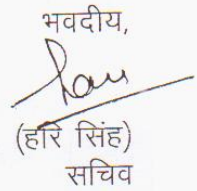 भवदीय,
(हरि सिंह)
सचिव